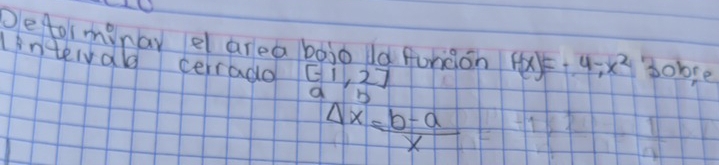 Determinar el area bajo la función f(x)=-4-x² sobre
intervalo cerrado [-1, 2]
a b
Δx = b-a / x